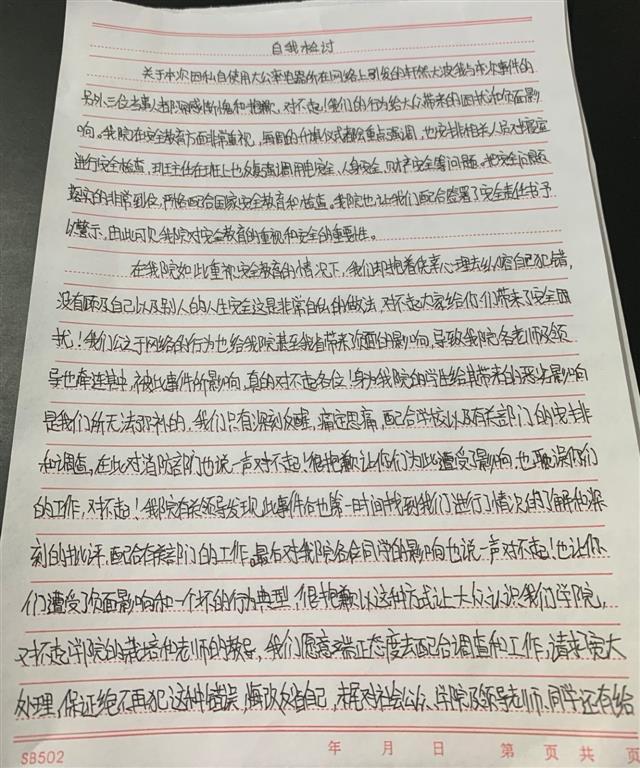 自我检讨
关于本次因私自使用大公率电器所在网络上引发的轩然大波我与本次事件的
另外三位当事人都深感惭愧和抱歉，对不起！我们的行为给大众带来的困扰和负面影
响。我院在安全教育方面非常重视，每周的升旗仪式都会重点强调，也安排相关人员对寝室
进行安全检查，班主任在班上也反复强调用电安全，人身安全，财产安全等问题。把安全问题
落实的非常到位，严格配合国家安全教育和检查。我院也让我们配合签署了安全责任书予
以警示，由此可见我院对安全教育的重视和安全的重要性。
在我院如此重视安全教育的情况下，我们却抱着侥幸心理去纵容自己犯错，
没有顾及自己以及别人的人生安全这是非常自私的做法，对不起大家给你们带来了安全困
扰！我们公于网络的行为也给我院甚至我省带来了负面的影响，导致我院各老师及领
导也牵连其中，被此事件所影响，真的对不起各位！身为我院的学生给其带来的恶劣影响
是我们所无法弥补的，我们只有深刻反醒，痛定思痛，配合学校以及有关部门的安排
和调查，在此对消防部门也说一声对不起！很抱歉让你们为此遭受了影响，也耽误你们
的工作，对不起！我院有关领导发现此事件后也第一时间找到我们进行了情况的了解和深
刻的批评，配合有关部门的工作。最后对我院各位同学的影响也说一声对不起！也让你
们遭受了负面影响和一个坏的行为典型，很抱歉以这种方式让大众认识我们学院，
对不起学院的栽培和老师的教导，我们愿意端正态度去配合调查和工作，请求宽大
处理，保证绝不再犯这种错误，悔改反省自己，末尾对社会公众、学院及领导老师、同学还有给
SB502 年 月 日 第 页 共 页